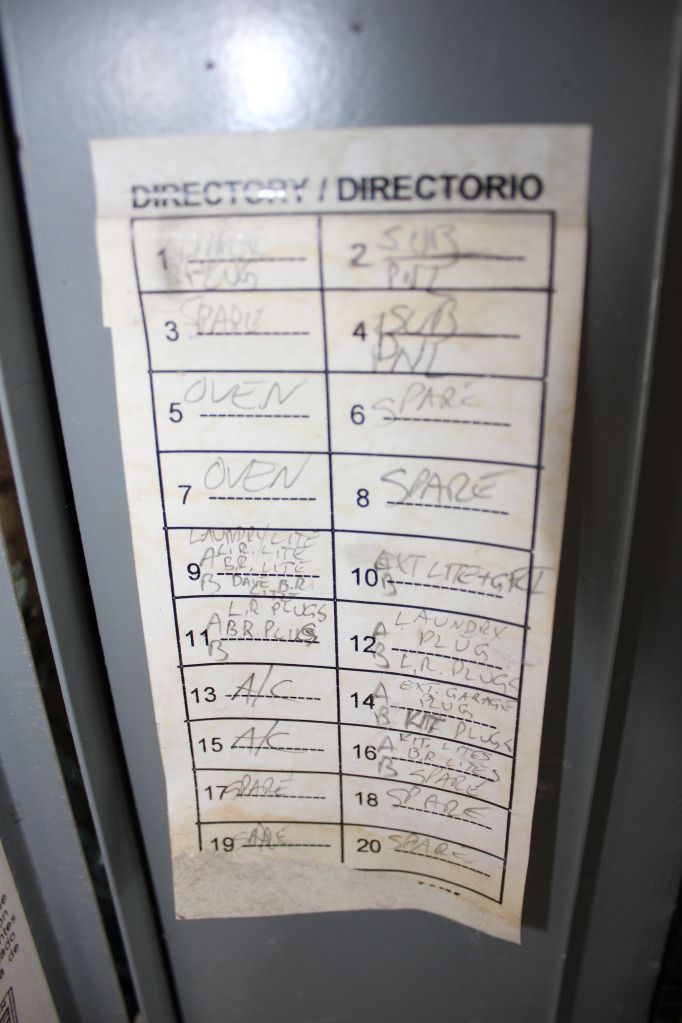 DIRECTORY / DIRECTORIO
1 PLUG
2 SUB PNL
3 SPARE
4 SUB PNL
5 OVEN
6 SPARE
7 OVEN
8 SPARE
9 LAUNDRY LITE
A L.R. LITE
B.R. LITE
B DAVE B.R.
LITE
10 A EXT LITE + GFCI
B
11 L.R PLUGS
A B.R. PLUGS
B
12 A LAUNDRY
PLUG
B L.R. PLUGS
13 A/C
14 A EXT. GARAGE
PLUG
B KIT PLUGS
15 A/C
16 A KIT. LITES
B.R. LITES
B SPARE
17 SPARE
18 SPARE
19 SPARE
20 SPARE